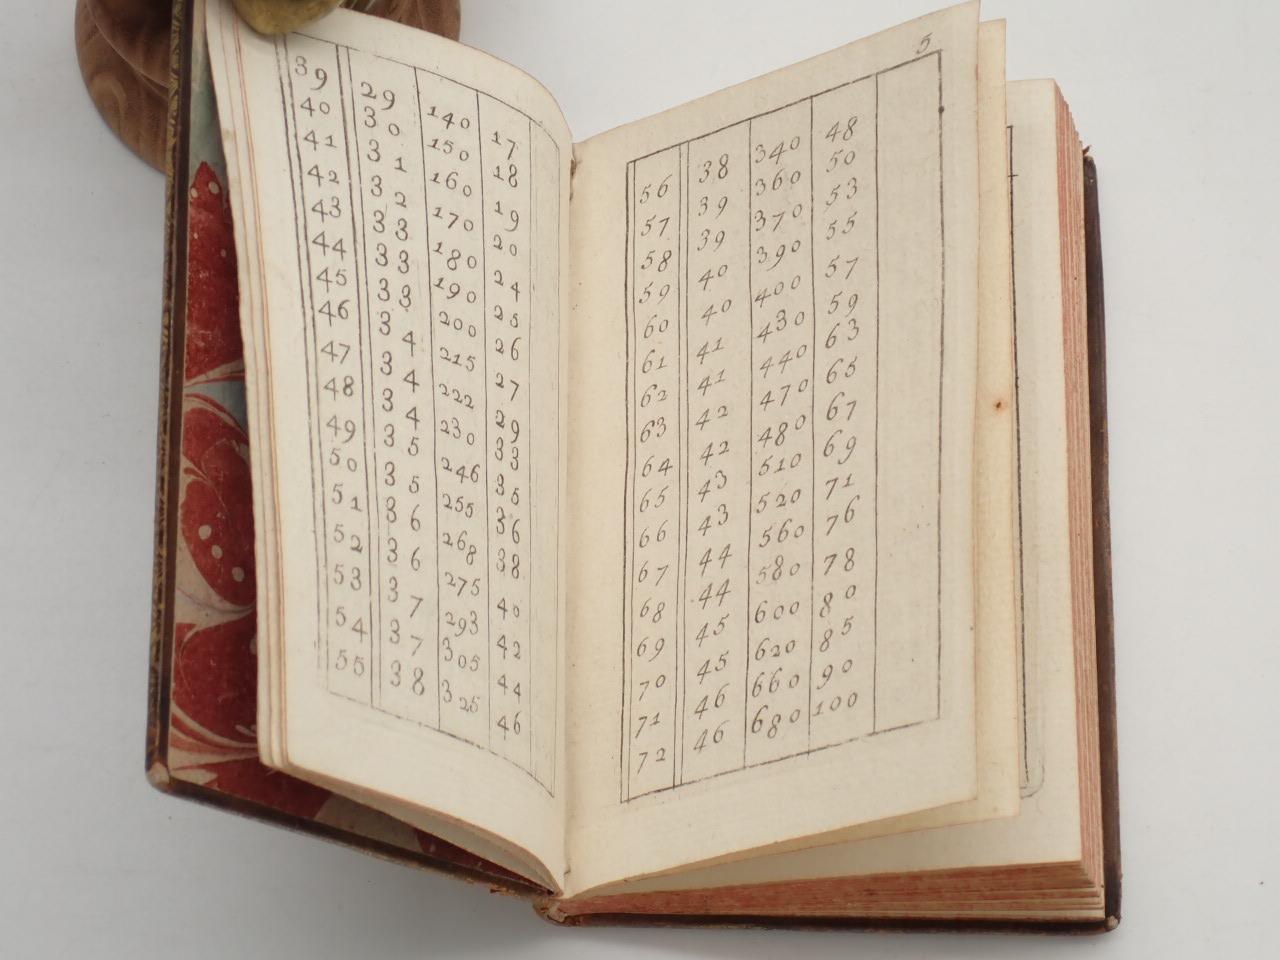 39 29 140 17
40 30 150 18
41 31 160 19
42 32 170 20
43 33 180 24
44 33 190 25
45 33 200 26
46 34 215 27
47 34 222 29
48 34 230 33
49 35 246 35
50 35 255 36
51 36 268 38
52 36 275 40
53 37 293 42
54 37 305 44
55 38 325 46
5
56 38 340 48
57 39 360 50
58 39 370 53
59 40 390 55
60 40 400 57
61 41 430 59
62 41 440 63
63 42 470 65
64 42 480 67
65 43 510 69
66 43 520 71
67 44 560 76
68 44 580 78
69 45 600 80
70 45 620 85
71 46 660 90
72 46 680 100